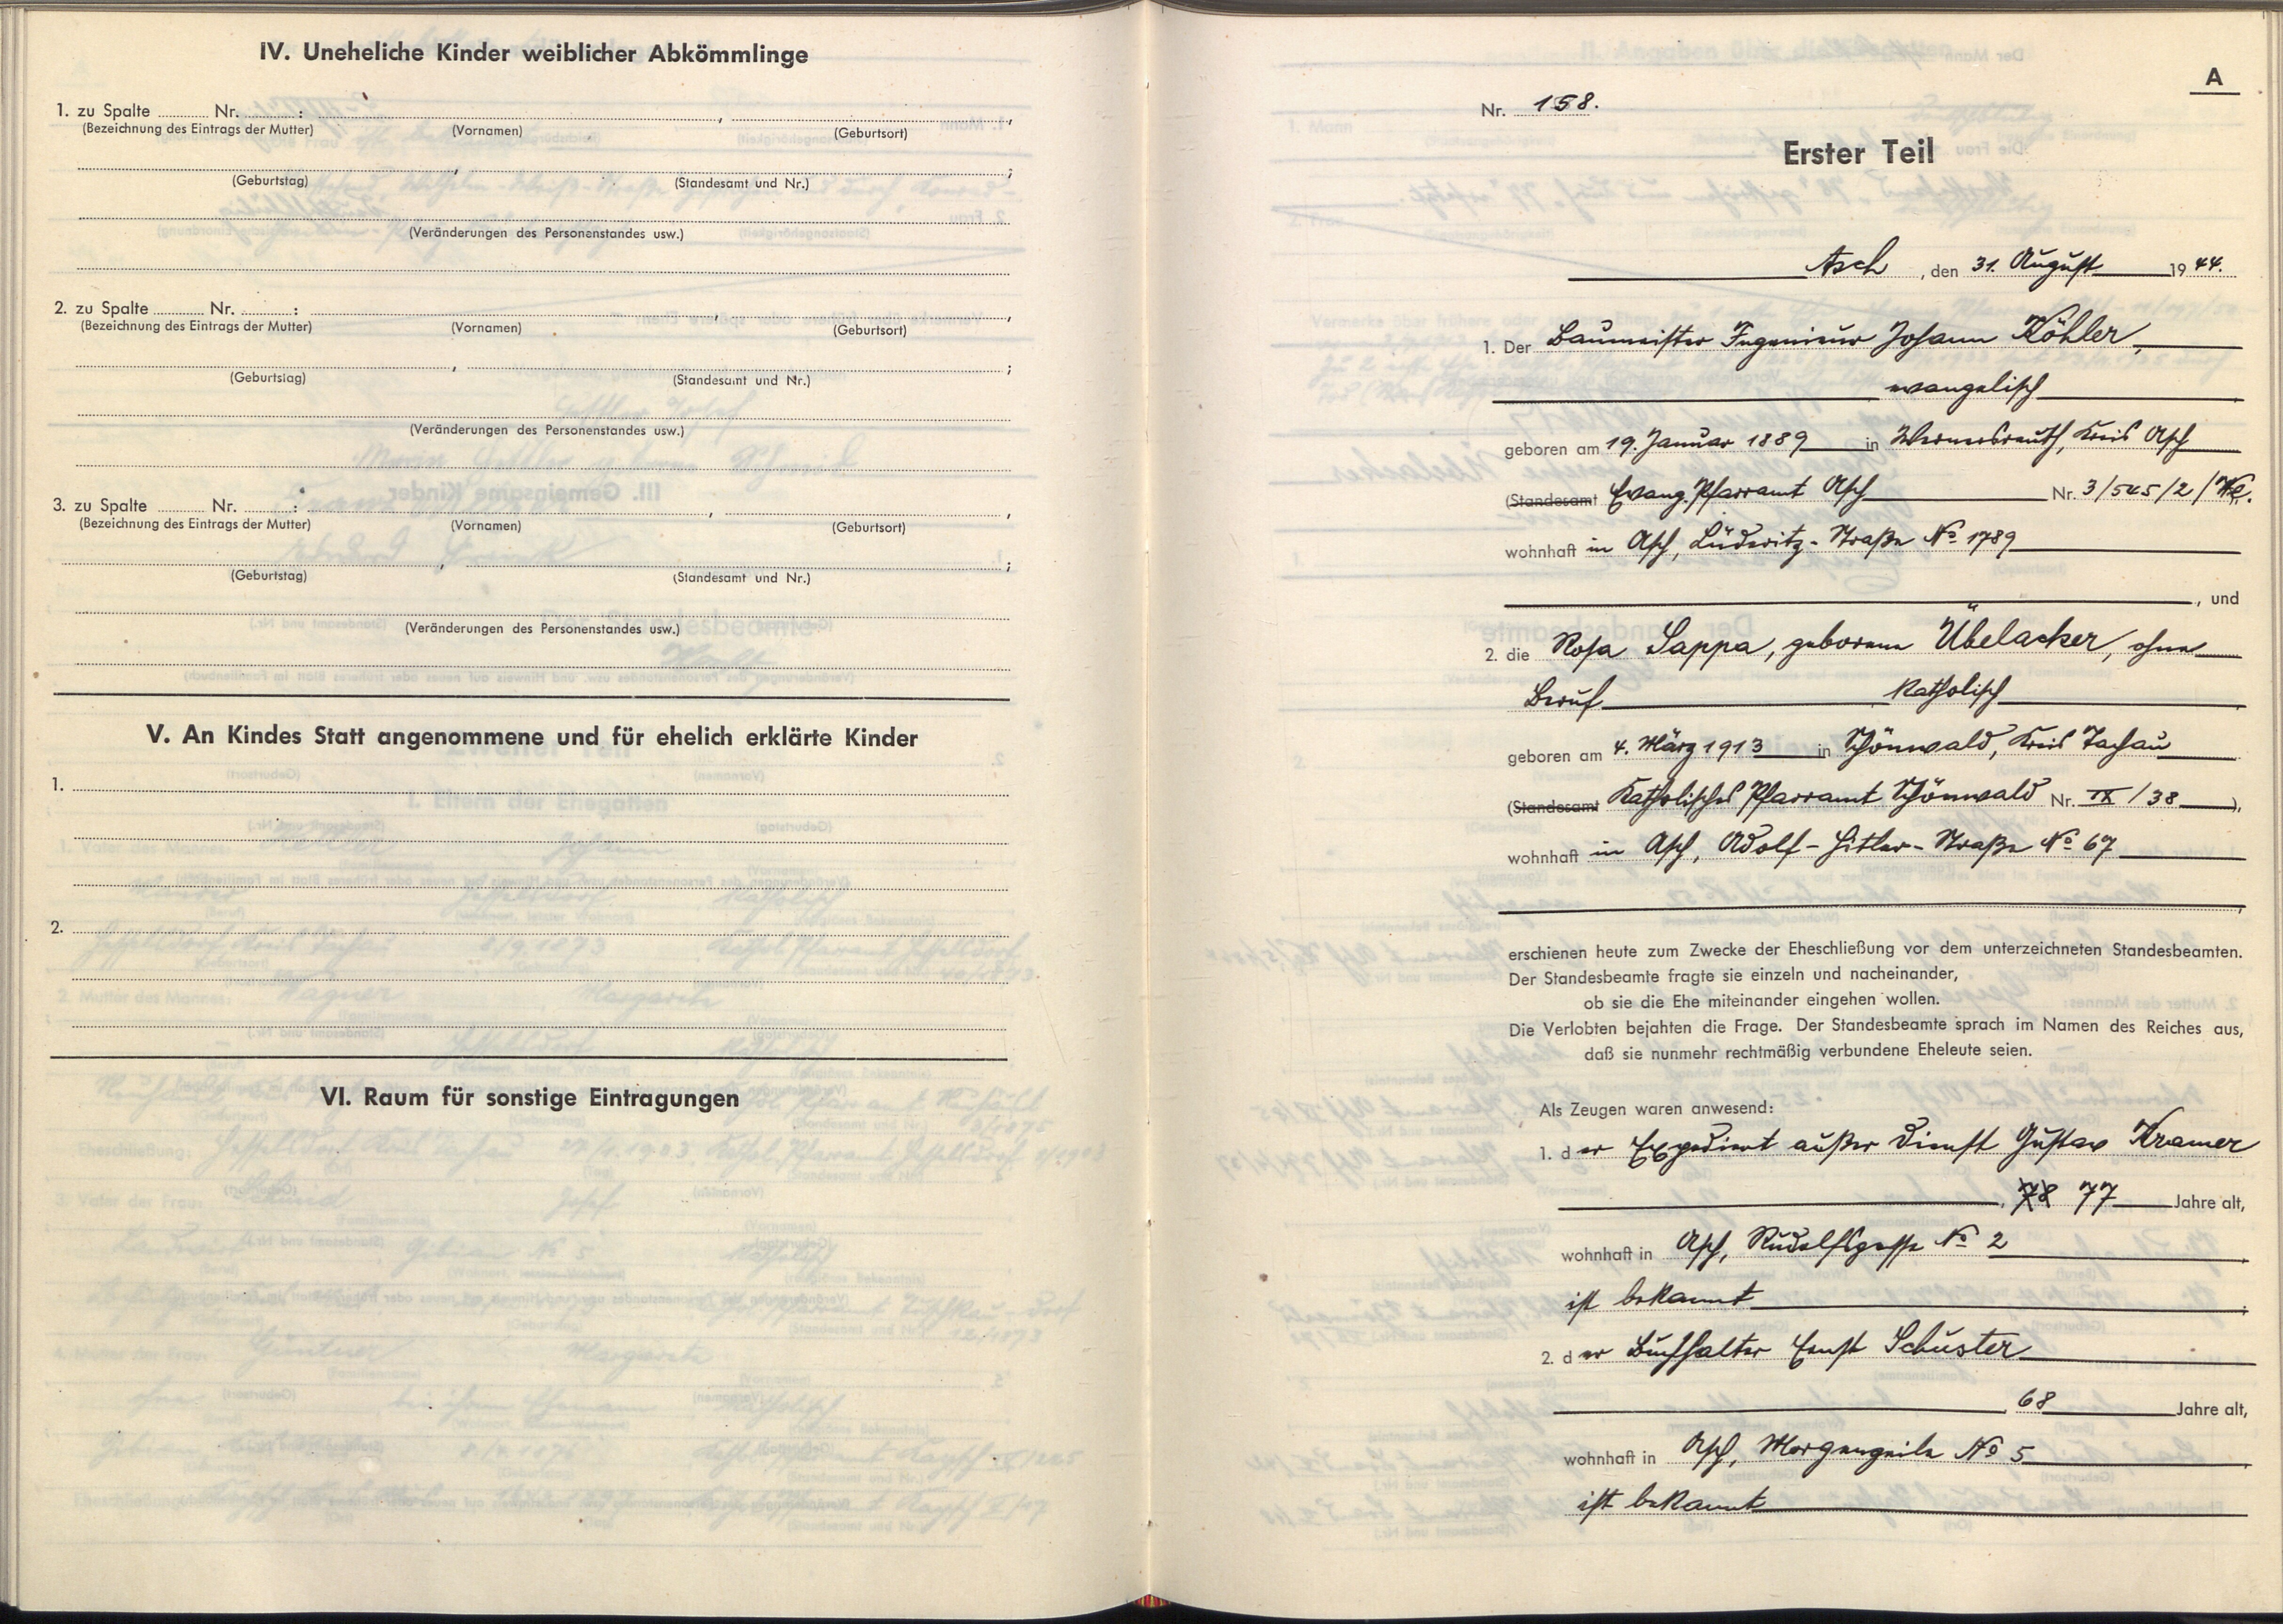 IV. Uneheliche Kinder weiblicher Abkömmlinge
1. zu Spalte ........ Nr. ........ : ........ , ........ ,
(Bezeichnung des Eintrags der Mutter) (Vornamen) (Geburtsort)
(Geburtstag) , (Standesamt und Nr.) ;
(Veränderungen des Personenstandes usw.)
2. zu Spalte ........ Nr. ........ : ........ , ........ ,
(Bezeichnung des Eintrags der Mutter) (Vornamen) (Geburtsort)
(Geburtstag) , (Standesamt und Nr.) ;
(Veränderungen des Personenstandes usw.)
3. zu Spalte ........ Nr. ........ : ........ , ........ ,
(Bezeichnung des Eintrags der Mutter) (Vornamen) (Geburtsort)
(Geburtstag) , (Standesamt und Nr.) ;
(Veränderungen des Personenstandes usw.)
V. An Kindes Statt angenommene und für ehelich erklärte Kinder
1.
2.
VI. Raum für sonstige Eintragungen
A
Nr. 158.
Erster Teil
Asch, den 31. August 1944.
1. Der Baumeister Ingenieur Johann Köhler,
evangelisch,
geboren am 19. Januar 1889 in Wernersreuth, Kreis Asch
(Standesamt Evang. Pfarramt Asch Nr. 3/545/2/We.
wohnhaft in Asch, Lüderitz-Straße No 1789
, und
2. die Rosa Sappa, geborene Übelacker, ohne
Beruf katholisch,
geboren am 4. März 1913 in Schönwald, Kreis Tachau
(Standesamt Katholisches Pfarramt Schönwald Nr. IX/38),
wohnhaft in Asch, Adolf-Hitler-Straße No 67
,
erschienen heute zum Zwecke der Eheschließung vor dem unterzeichneten Standesbeamten.
Der Standesbeamte fragte sie einzeln und nacheinander,
ob sie die Ehe miteinander eingehen wollen.
Die Verlobten bejahten die Frage. Der Standesbeamte sprach im Namen des Reiches aus,
daß sie nunmehr rechtmäßig verbundene Eheleute seien.
Als Zeugen waren anwesend:
1. der Expedient außer Dienst Gustav Kramer
, 78 77 Jahre alt,
wohnhaft in Asch, Rudolfsgasse No 2,
ist bekannt;
2. der Buchhalter Ernst Schuster
, 68 Jahre alt,
wohnhaft in Asch, Morgenzeile No 5,
ist bekannt